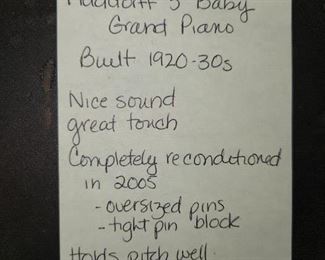 Haddorff 5' Baby
Grand Piano
Built 1920-30s
Nice sound
great touch
Completely reconditioned
in 2005
- oversized pins
- tight pin block
Holds pitch well.